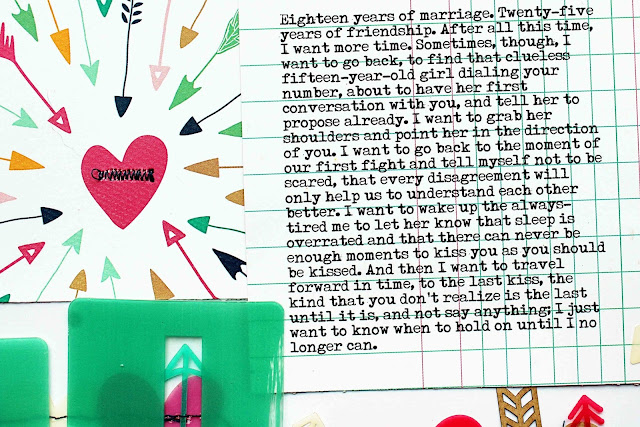 Eighteen years of marriage. Twenty-five
years of friendship. After all this time,
I want more time. Sometimes, though, I
want to go back, to find that clueless
fifteen-year-old girl dialing your
number, about to have her first
conversation with you, and tell her to
propose already. I want to grab her
shoulders and point her in the direction
of you. I want to go back to the moment of
our first fight and tell myself not to be
scared, that every disagreement will
only help us to understand each other
better. I want to wake up the always-
tired me to let her know that sleep is
overrated and that there can never be
enough moments to kiss you as you should
be kissed. And then I want to travel
forward in time, to the last kiss, the
kind that you don't realize is the last
until it is, and not say anything; I just
want to know when to hold on until I no
longer can.